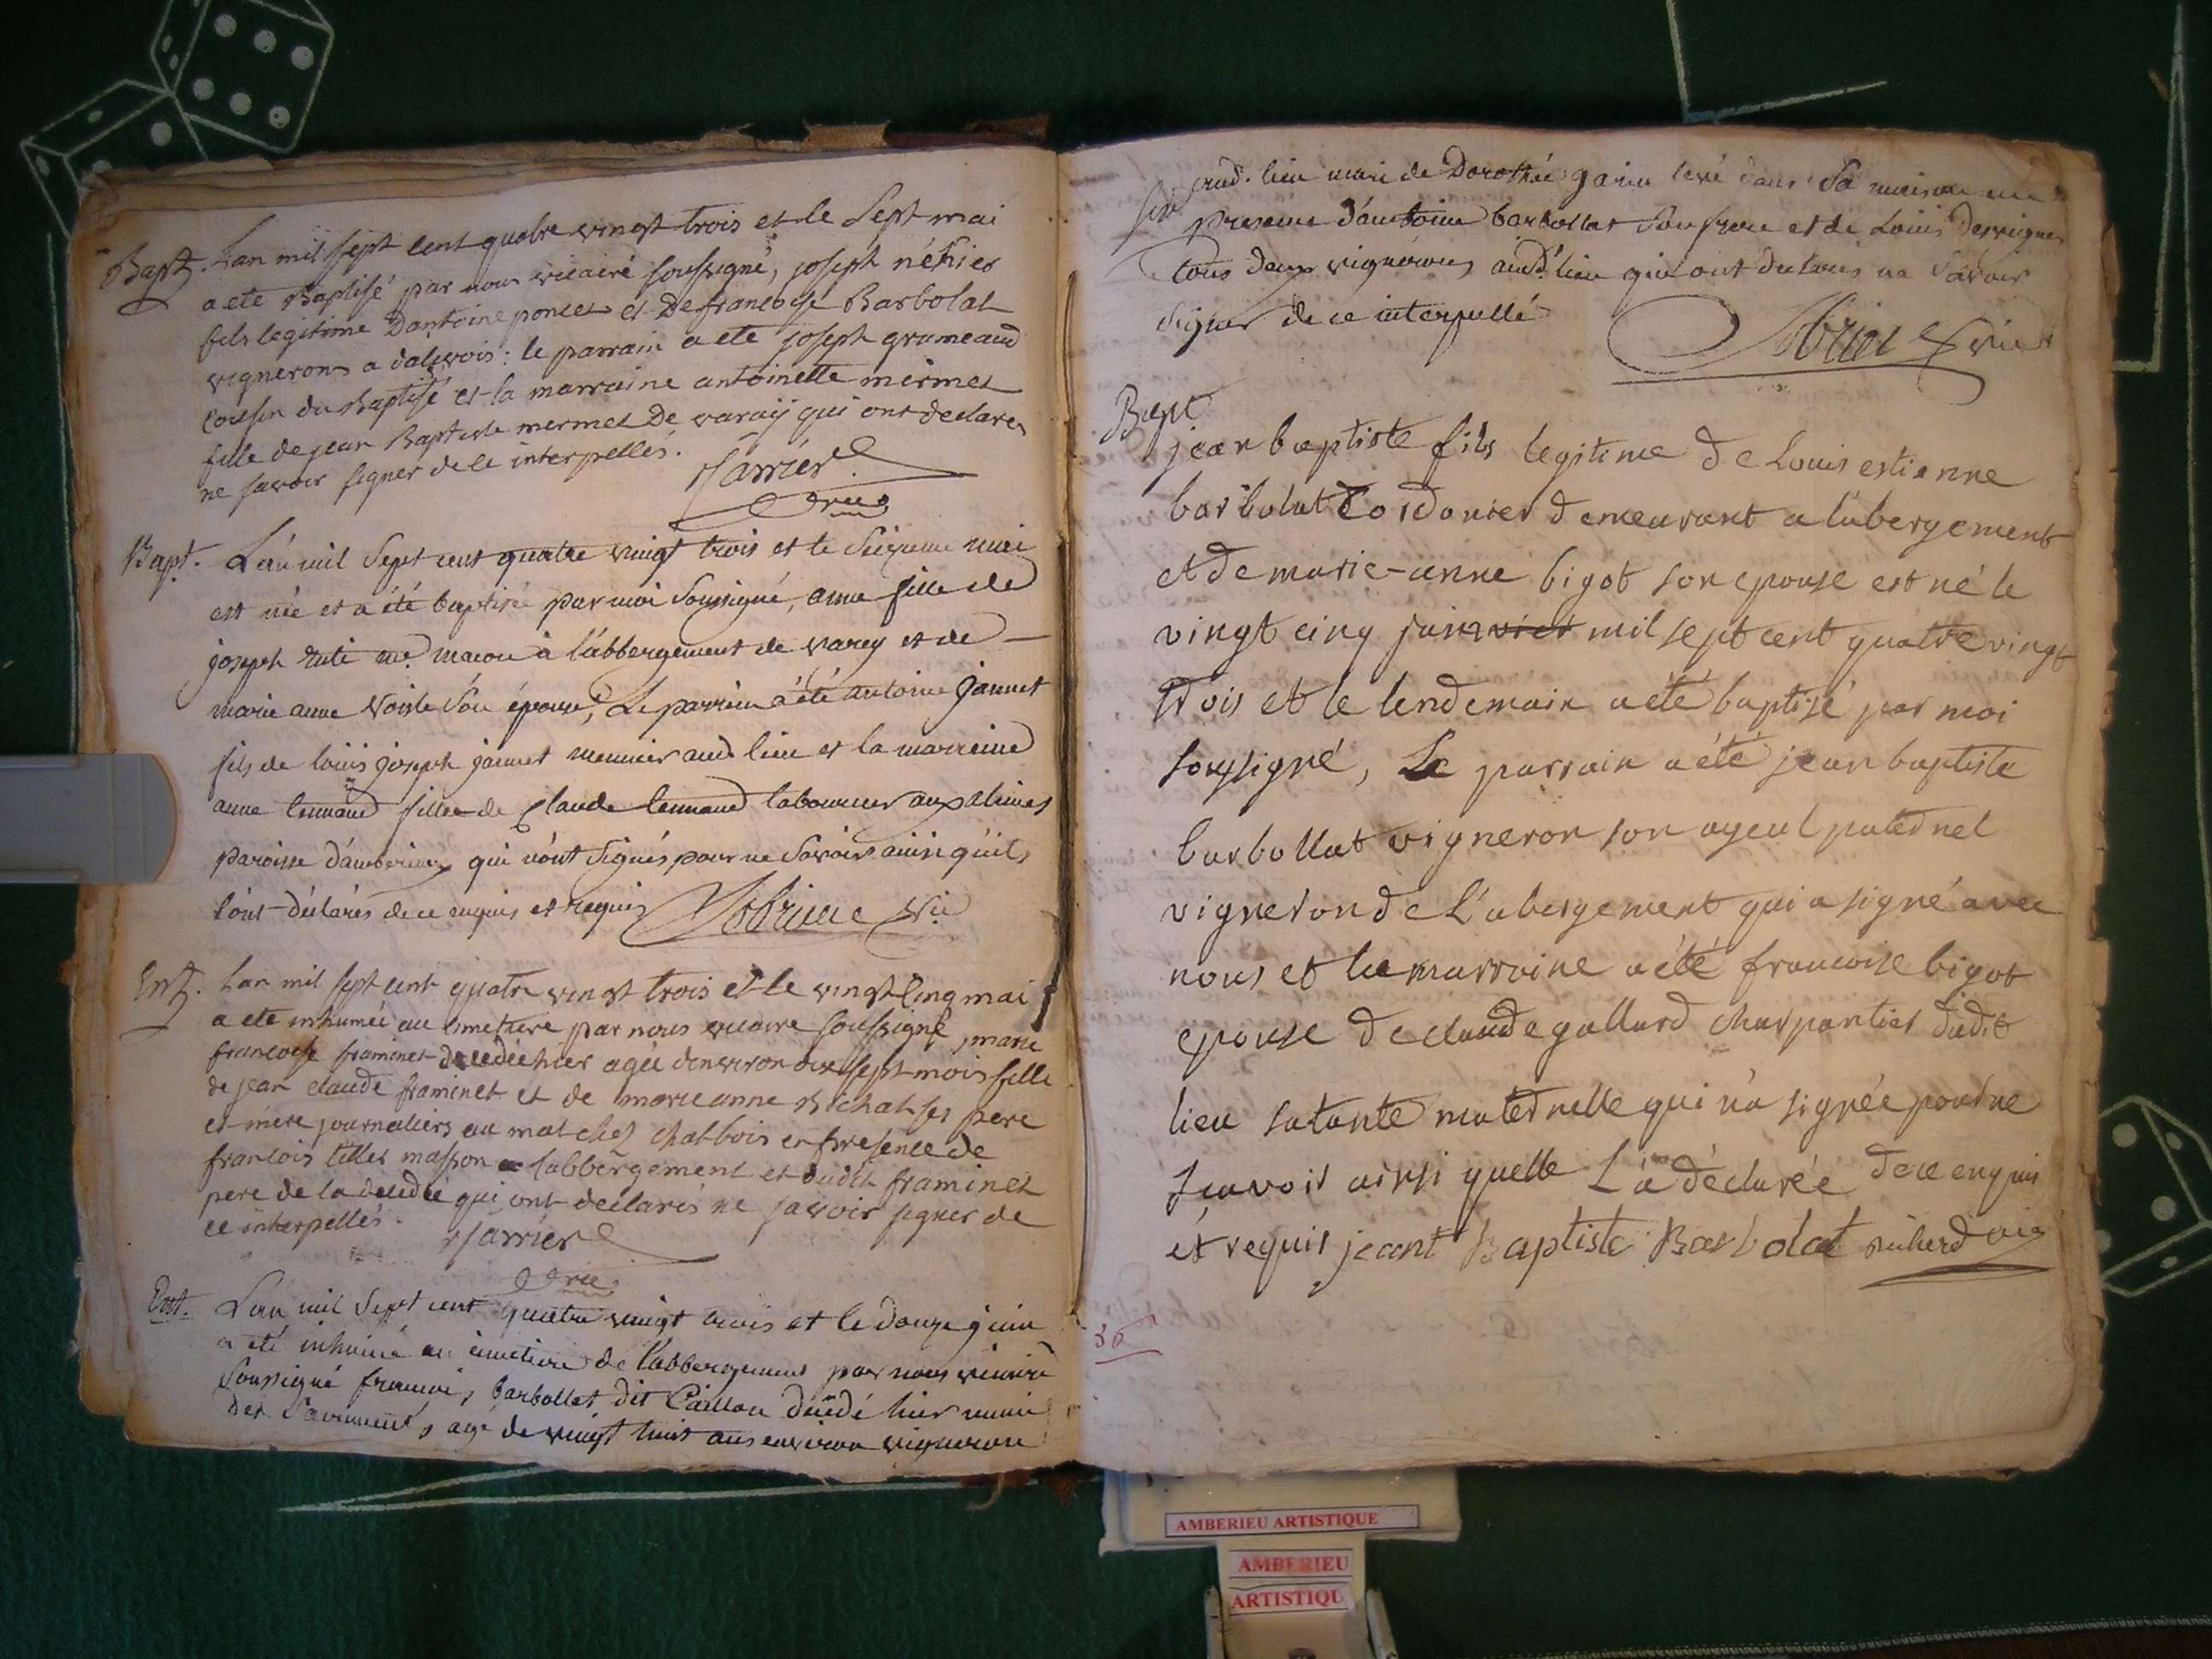 Bapt. Lan mil sept cent quatre vingt trois et le sept mai
a ete Baptisé par nous vicaire soussigné, joseph
fils legitime Dantoine poncet et De francoise Barbolat
vignerons a : le parrain a ete joseph grumeaud
cousin du Baptisé et la marraine antoinette mermet
fille de jean Baptiste mermet De varaÿ qui ont declarés
ne savoir signer de ce interpellés.
Sarrier
vic
Bapt. L'an mil sept cent quatre vingt trois et le seizieme mai
est née et a été baptisée par moi soussigné, anne fille de
joseph me macon à l'abbergement de varey et de
marie anne son épouse, Le parrein a été antoine jannet
fils de louis joseph jannet meunier aud lieu et la marreine
anne fille de Claude laboureur aux alimes
paroisse d'amberieux qui n'ont signés pour ne savoir ainsi qu'ils
l'ont déclarés de ce enquis et requis vic
Ent. Lan mil sept cent quatre vingt trois et le vingt cinq mai
a ete inhumée au cimetiere par nous vicaire soussigné, marie
francoise framinet decedée hier agée denviron dix sept mois fille
de jean claude framinet et de marieanne Bichat ses pere
et mere journaliers au mat chez chatbois en presence de
francois tillet masson a labbergement et dudit framinet
pere de la decedée qui ont declarés ne savoir signer de
ce interpellés. Sarrier
vic
Ent. L'an mil sept cent quatre vingt trois et le douze juin
a été inhumé au cimetiere de l'abbergement par nous vicaire
soussigné francois barbollat dit Caillou décédé hier muni
des sacrements, agé de vingt huit ans environ vigneron
aud. lieu mari de Dorothée levé dans sa maison en
presence d'antoine barbollat son frere et de Louis
tous deux vignerons aud. lieu qui ont declarés ne savoir
signer de ce interpellé
vic
Bapt
jean baptiste fils legitime de Louis estienne
barbolat Cordonier demeurant a l'abergement
et de marie-anne bigot son epouse est né le
vingt cinq juin mil sept cent quatre vingt
trois et le lendemain a été baptisé par moi
soussigné, Le parrain a été jean baptiste
barbollat vigneron son ayeul paternel
vigneron de L'abergement qui a signé avec
nous et la marraine a été francoise bigot
epouse de claude gallard charpantier dudit
lieu sa tante maternelle qui n'a signée pour ne
sçavoir ainsi quelle L'a déclarée de ce enquis
et requis jeant Baptiste Barbolat
36
AMBERIEU ARTISTIQUE
AMBERIEU
ARTISTIQU